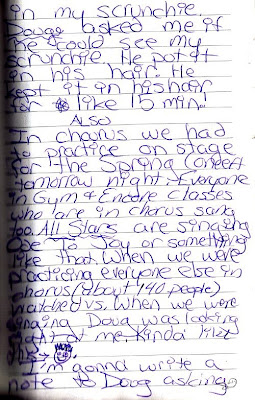 in my scrunchie.
Doug asked me if
he could see my
scrunchie. He put it
in his hair. He
kept it in his hair
for like 15 min.
ALSO
In chorus we had
to practice on stage
for the Spring Concert
tomorrow night. Everyone
in Gym & Encore classes
who are in chorus sang
too. All Stars are singing
Ode To Joy or something
like that. When we were
practicing everyone else in
chorus (about 140 people)
watched us. When we were
singing Doug was looking
right at me. Kinda like
this →
I'm gonna write a
note to Doug asking